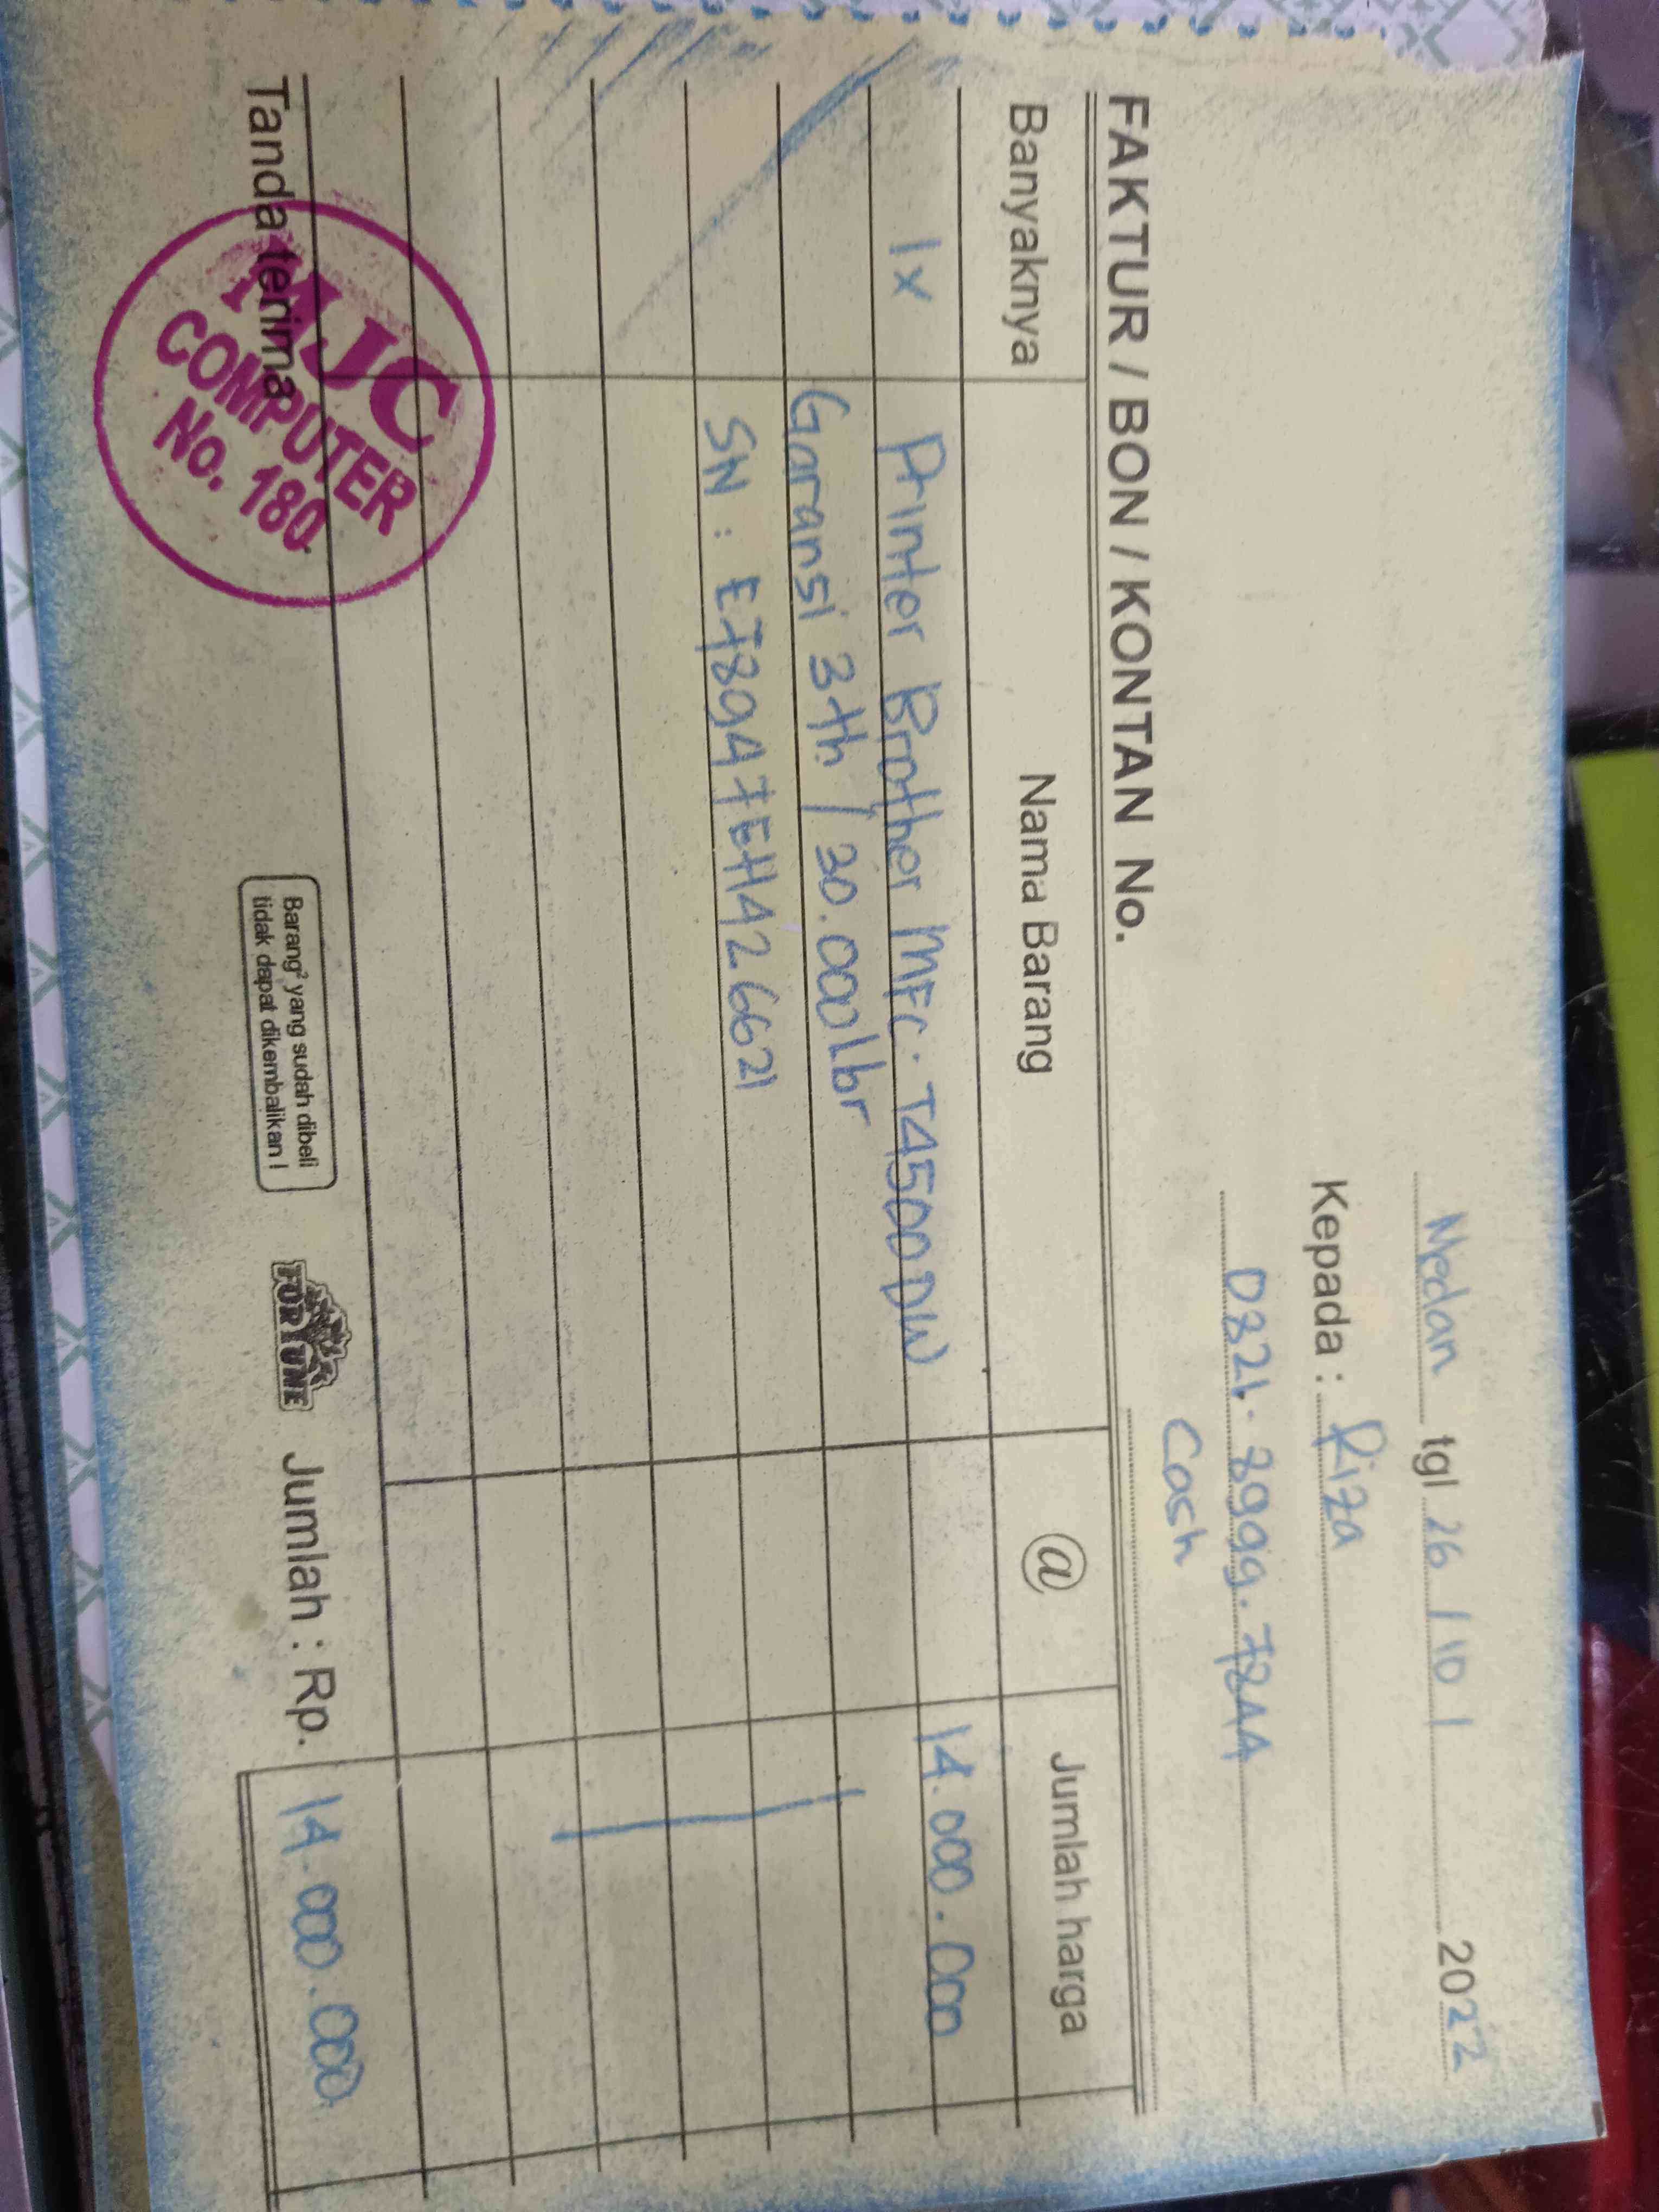 Medan tgl 26 / 10 / 2022
Kepada : Riza
0821. 8999. 7244
Cash
FAKTUR / BON / KONTAN No.
Banyaknya Nama Barang @ Jumlah harga
1x Printer Brother MFC. T4500DW 14.000.000
Garansi 3th / 30.000lbr
SN : E78947EH426621
Tanda terima
MJC
COMPUTER
No. 180
Barang² yang sudah dibeli
tidak dapat dikembalikan !
FORTUNE
Jumlah : Rp. 14.000.000